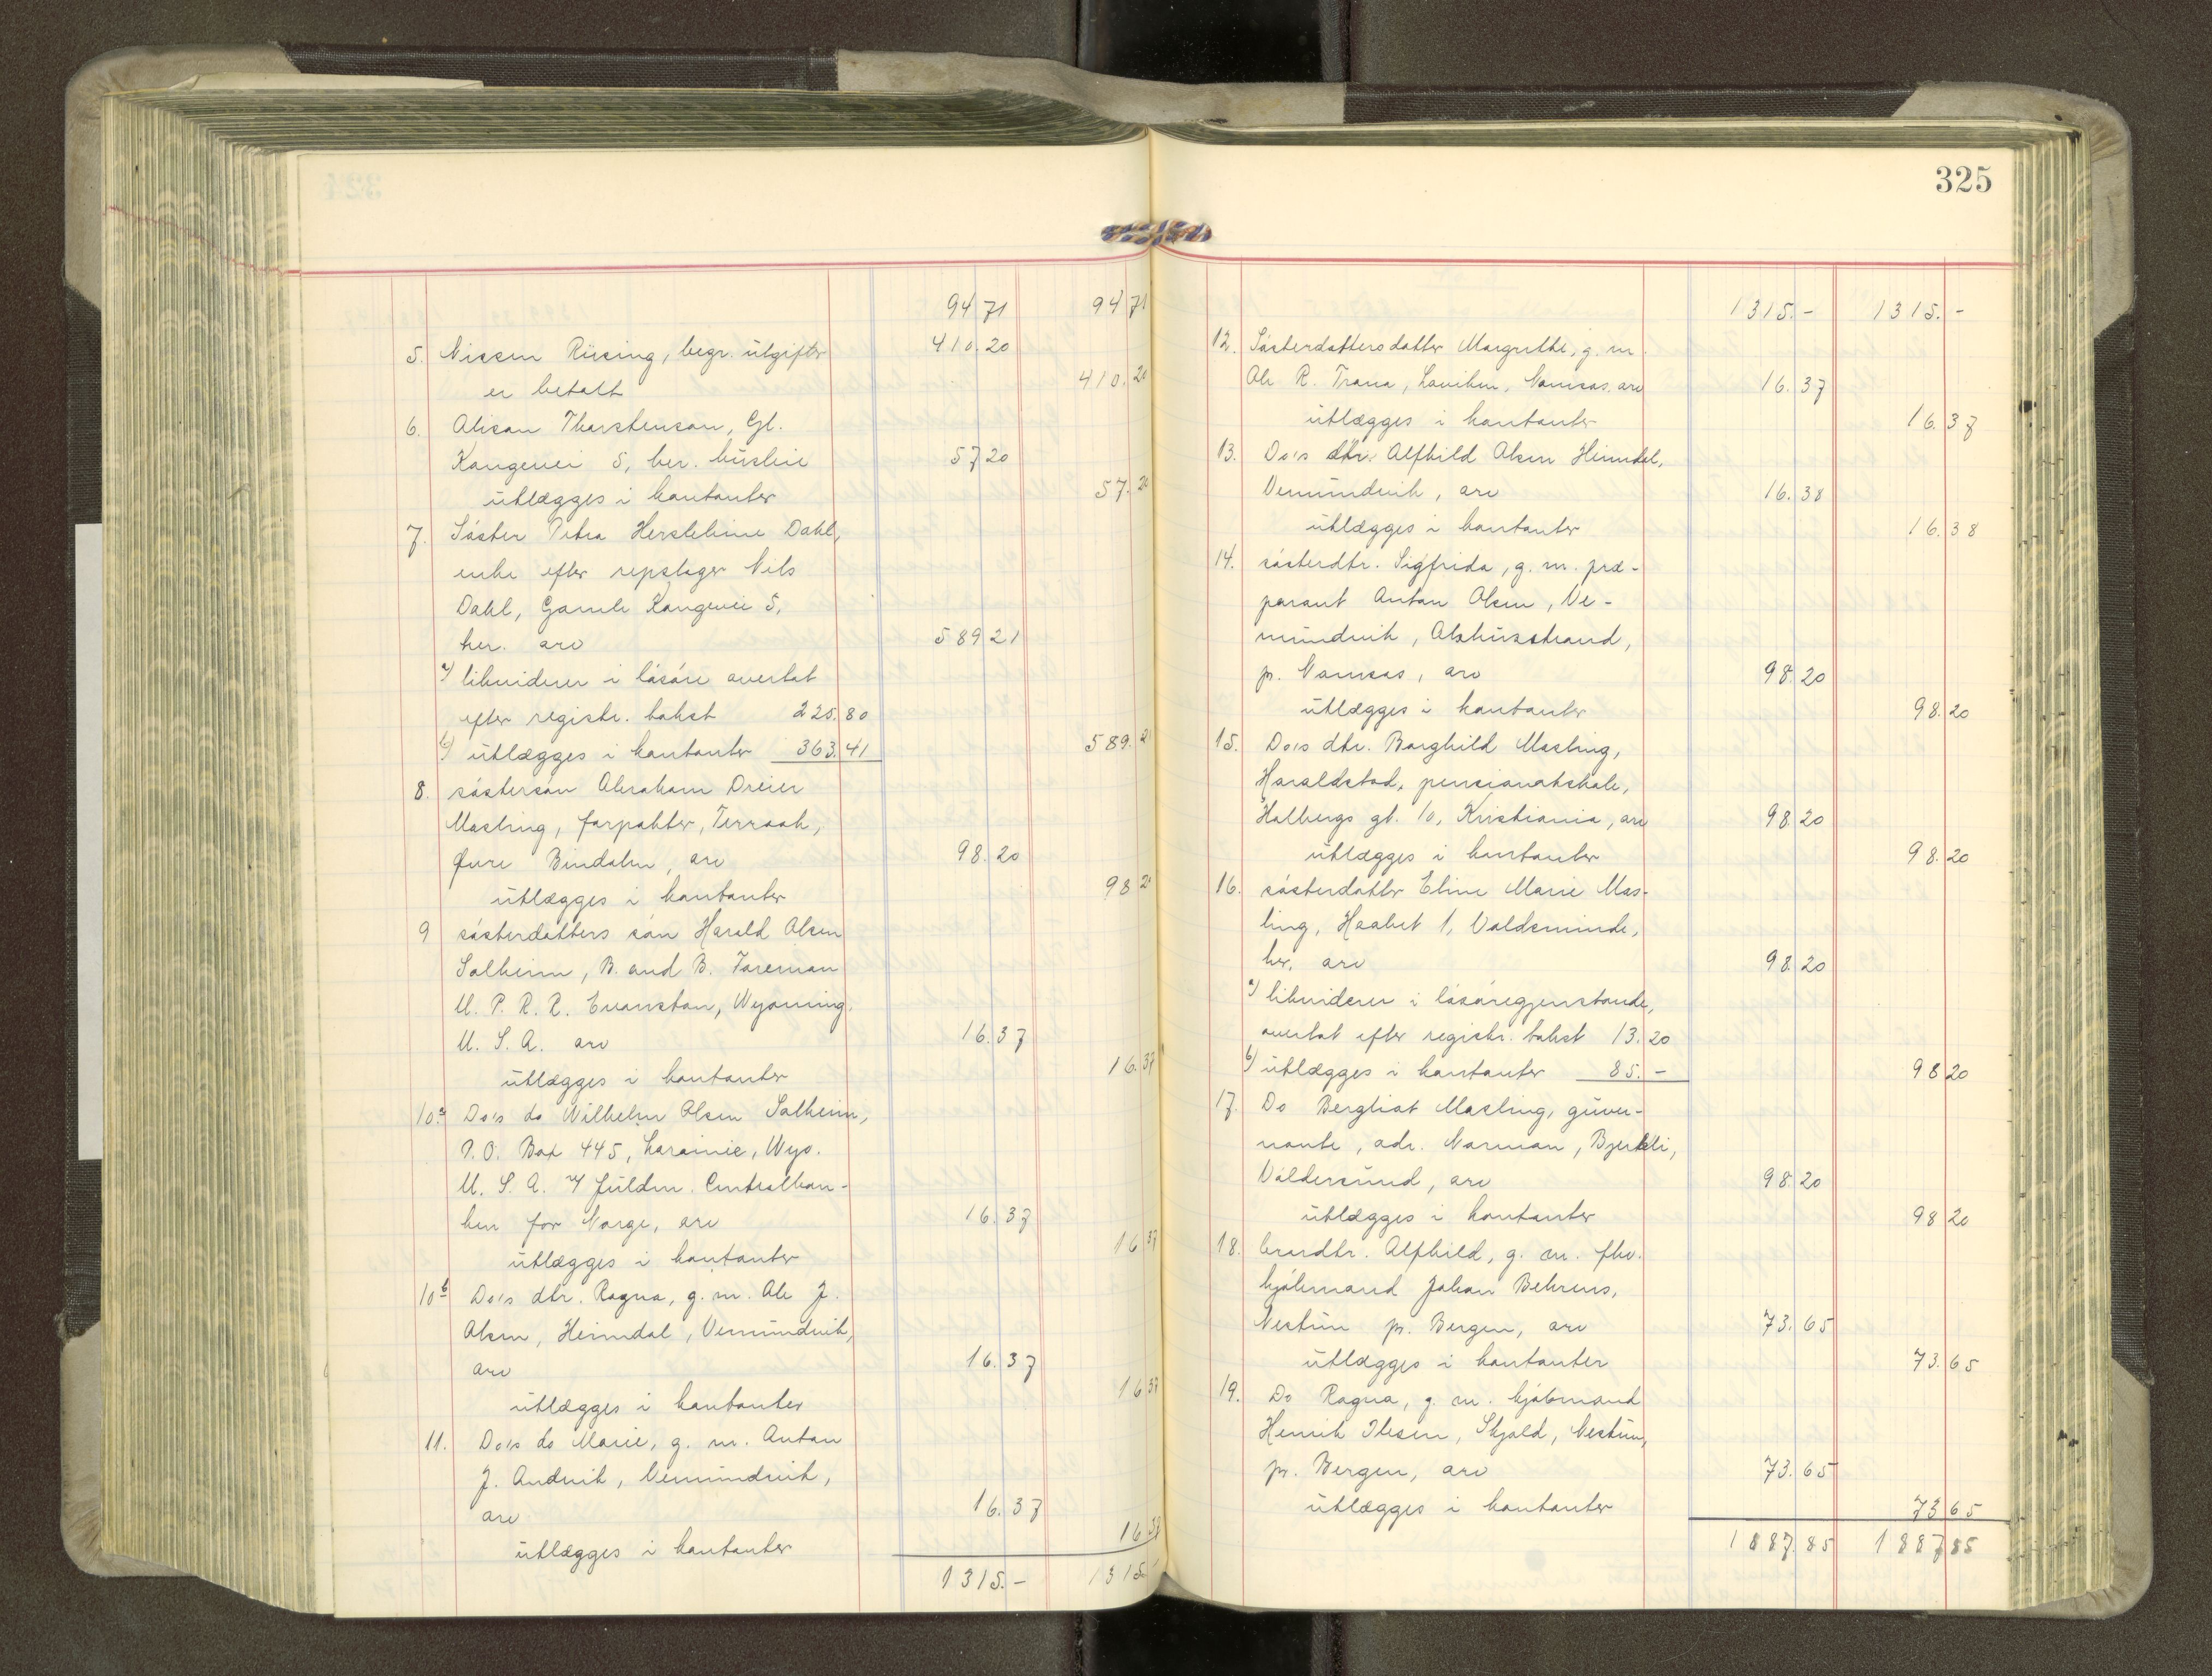 94 71 94 71
5. Nissen Riising, begr. utgifter 410.20
er betalt 410.20
6. Alison Thorstenson, Gl.
Kongevei 5, her. husleie 57 20
utlægges i kontanter 57.20
7. Søster Petra Herslebine Dahl,
enke efter repslager Nils
Dahl, Gamle Kongevei 5,
her. arv 589 21
a) likviderer i løsøre overtat
efter registr. takst 225.80
b) utlægges i kontanter 363.41 589.21
8. søstersøn Abraham Dreier
Masling, forpakter, Terraak,
Øvre Bindalen, arv 98.20
utlægges i kontanter 98 20
9 søsterdatters søn Harald Olsen
Solheim, B. and B. Foreman
U. P. R. R. Evanston, Wyoming.
U. S. A. arv 16.37
utlægges i kontanter 16.37
10a Do's do Wilhelm Olsen Solheim,
P.O. Box 445, Laramie, Wyo.
U. S. A. v/ fuldm. Centralban-
ken for Norge, arv 16.37
utlægges i kontanter 16 37
10b Do's dtr. Ragna, g. m. Ole J.
Olsen, Heimdal, Vemundvik,
arv 16.37
utlægges i kontanter 16 37
11. Do's do Marie, g. m. Anton
J. Andvik, Vemundvik,
arv 16.37
utlægges i kontanter 16 37
1315.- 1315.-
325
1315.- 1315.-
12. Søsterdattersdatter Margrethe, g. m.
Ole R. Trana, Namsos. arv 16.37
utlægges i kontanter 16.37
13. Do's dtr. Alfhild Olsen Heimdal,
Vemundvik, arv 16.38
utlægges i kontanter 16.38
14. søsterdtr. Sigfrida, g. m. præ-
parant Anton Olsen, Ve-
mundvik, Alshusstrand,
pr. Namsos, arv 98.20
utlægges i kontanter 98.20
15. Do's dtr. Borghild Masling,
Haraldstad, pensionatskole,
Holbergs gt. 10, Kristiania, arv 98.20
utlægges i kontanter 98.20
16. søsterdatter Eline Marie Mas-
ling, Haabet 1, Voldsminde,
her, arv 98.20
a) likviderer i løsøregjenstande,
overtat efter registr. takst 13.20
b) utlægges i kontanter 85.- 98 20
17. Do Bergliot Masling, guver-
nante, adr. Norman, Bjerkli,
Valdersund, arv 98.20
utlægges i kontanter 98 20
18. brordtr. Alfhild, g. m. fhv.
kjøbmand Johan Behrens,
Nestun pr. Bergen, arv 73.65
utlægges i kontanter 73.65
19. Do Ragna, g. m. kjøbmand
Henrik Ibsen, Skjold, Nestun,
pr. Bergen, arv 73.65
utlægges i kontanter 73 65
1887.85 1887 85